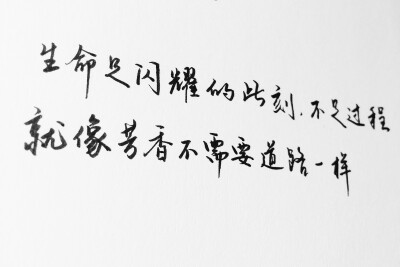 生命是闪耀的此刻.不是过程
就像芳香不需要道路一样